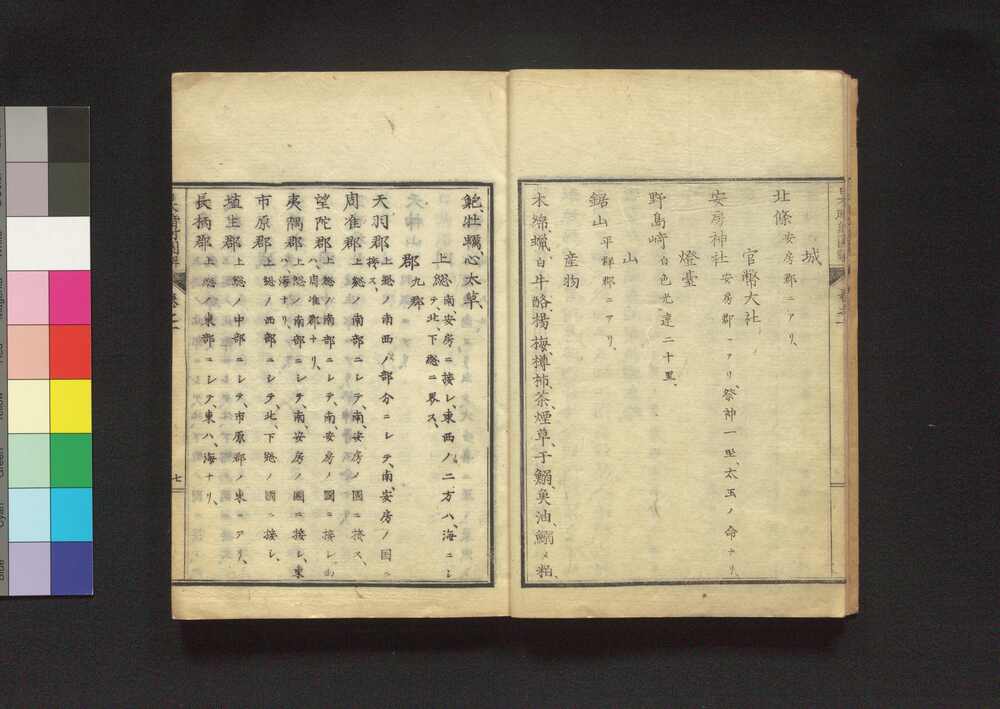 城
北條安房郡ニアリ、
官幣大社
安房神社安房郡ニアリ、祭神一坐、太玉ノ命ナリ、
燈臺
野島﨑白色光、達二十里、
山
鋸山平群郡ニアリ、
産物
木綿、蝋、白牛酪、楊梅、樽柿、茶、煙草、干鰯、魚油、鰯〆粕、
鮑、牡蠣、心太草、
上總南、安房ニ接シ、東西ノ二方ハ、海ニシテ、北、下總ニ界ス、
郡九郡
天羽郡上總ノ南西ノ部分ニシテ、南、安房ノ国ニ接ス、
周准郡上總ノ南部ニシテ、南、安房ノ國ニ接ス、
望陀郡上總ノ南部ニシテ、南、安房ノ國ニ接シ、西ハ、周准郡ナリ、
夷隅郡上總ノ南部ニシテ、南、安房ノ國ニ接シ、東ハ、海ナリ、
市原郡上總ノ西部ニシテ、北、下總ノ國ニ接シ、
埴生郡上總ノ中部ニシテ、市原郡ノ東ニアリ、
長柄郡上總ノ東部ニシテ、東ハ、海ナリ、
七